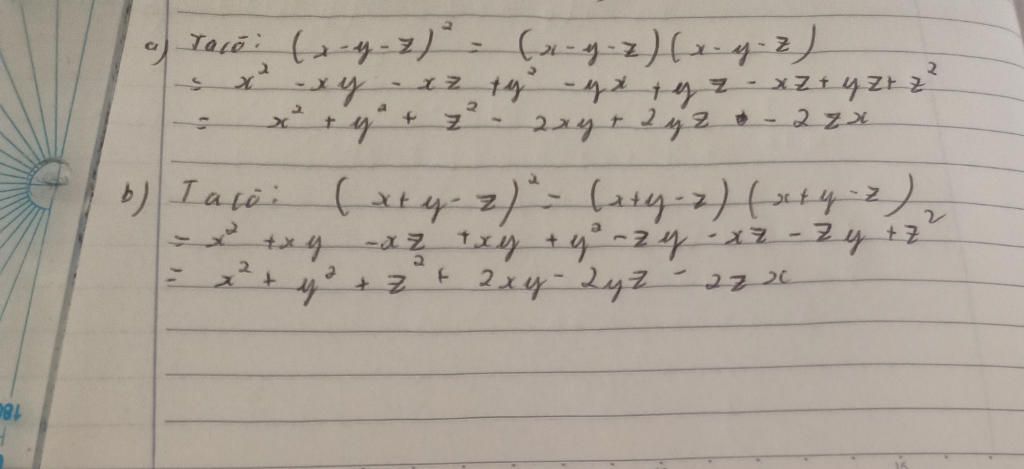 a) Ta có: (x-y-z)² = (x-y-z)(x-y-z)
= x² - xy - xz + y² - yx + yz - xz + yz + z²
= x² + y² + z² - 2xy + 2yz - 2zx
b) Ta có: (x+y-z)² = (x+y-z)(x+y-z)
= x² + xy - xz + xy + y² - zy - xz - zy + z²
= x² + y² + z² + 2xy - 2yz - 2zx
180